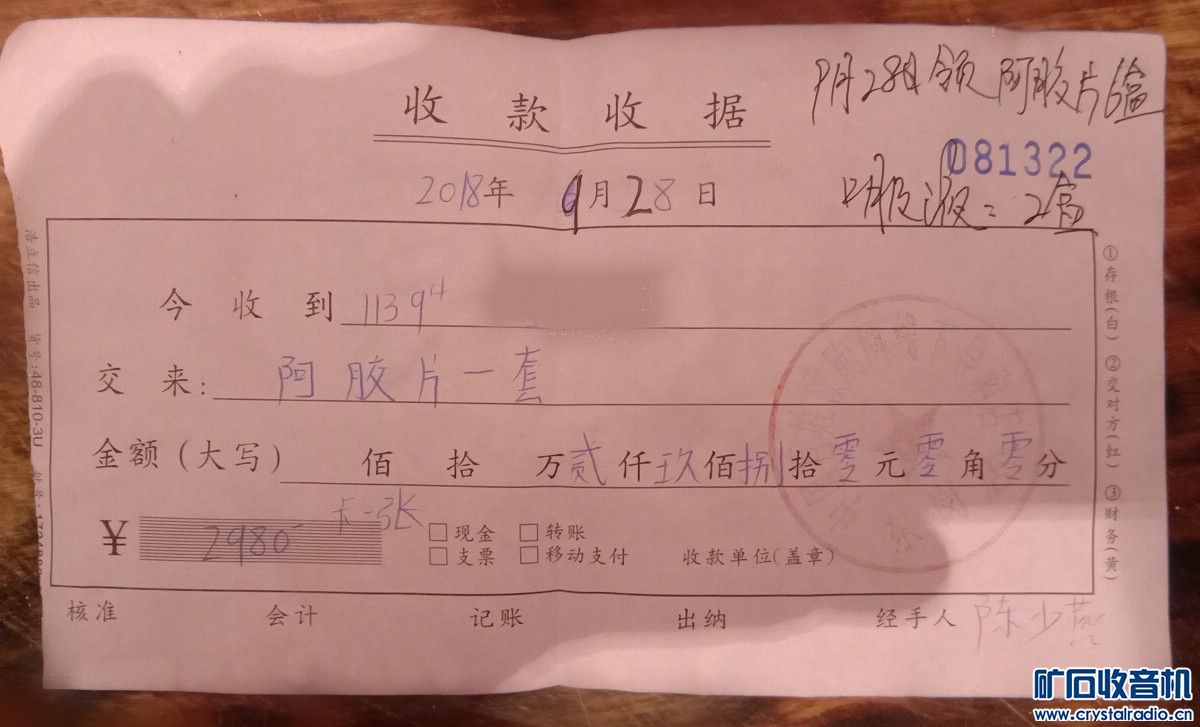 9月28日领阿胶片6盒
收款收据
081322
2018年 9月28日
液=2盒
今收到 11394
交来: 阿胶片一套
金额(大写) 佰 拾 万贰仟玖佰捌拾零元零角零分
卡一张
¥ 2980
□现金 □转账
□支票 □移动支付 收款单位(盖章)
核准 会计 记账 出纳 经手人 陈少
浩立信出品 货号:48-810-3U
①存根(白) ②交对方(红) ③财务(黄)
矿石收音机
www.crystalradio.cn